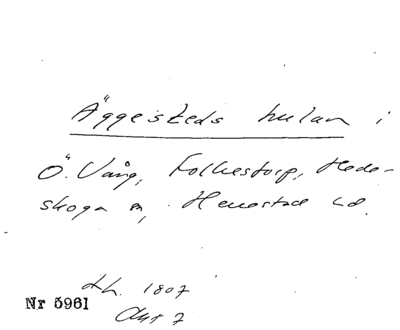 Äggesteds hulan i
Ö. Vång, Folkestorp, Hede-
skoga m, Herrestad hd.
d.h. 1807
Akt 7
Nr 5961